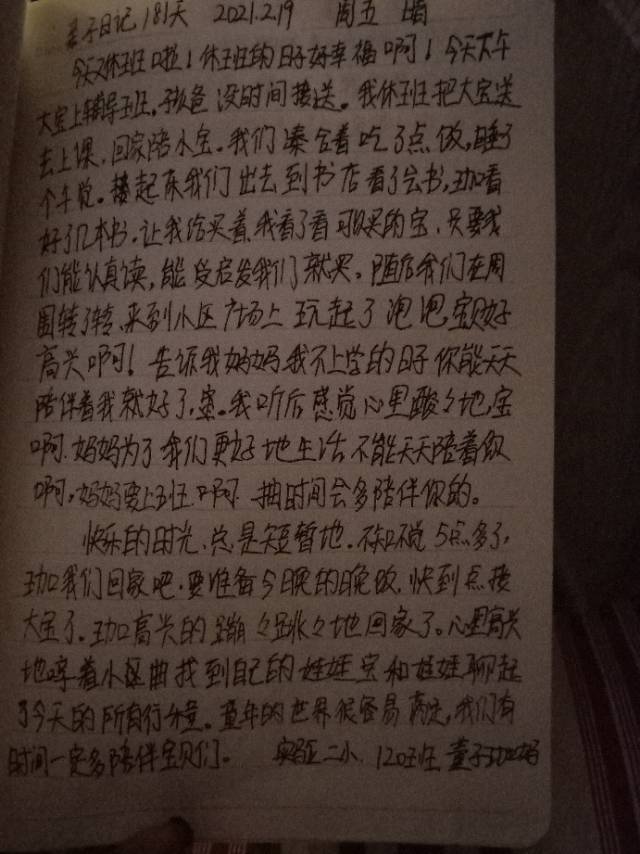 亲子日记181天 2021.2.19 周五 晴
今天休班啦！休班的日子好幸福啊！今天下午
大宝上辅导班。孩爸没时间接送。我休班把大宝送
去上课，回家陪小宝。我们凑合着吃了点饭，睡了
个午觉。接起床我们出去到书店看了会书，看
好了几本书，让我给买着，我看了看可以买的宝，只要我
们能认真读，能受启发我们就买。随后我们在周
围转了转，来到小区广场上玩起了泡泡，宝贝好
高兴啊！告诉我妈妈我不上学的日子你能天天
陪伴着我就好了，我听后感觉心里酸々地，宝
啊，妈妈为了我们更好地生活不能天天陪着你
啊，妈妈要上班啊，抽时间会多陪伴你的。
快乐的时光，总是短暂地。不知不觉5点多了，
我们回家吧，要准备今晚的晚饭，快到点接
大宝了。高兴的蹦々跳々地回家了。心里高兴
地哼着小区曲找到自己的娃娃宝和娃娃聊起
了今天的所有行童。童年的世界很容易满足，我们有
时间一定多陪伴宝贝们。 实验二小 120班 董子妈妈